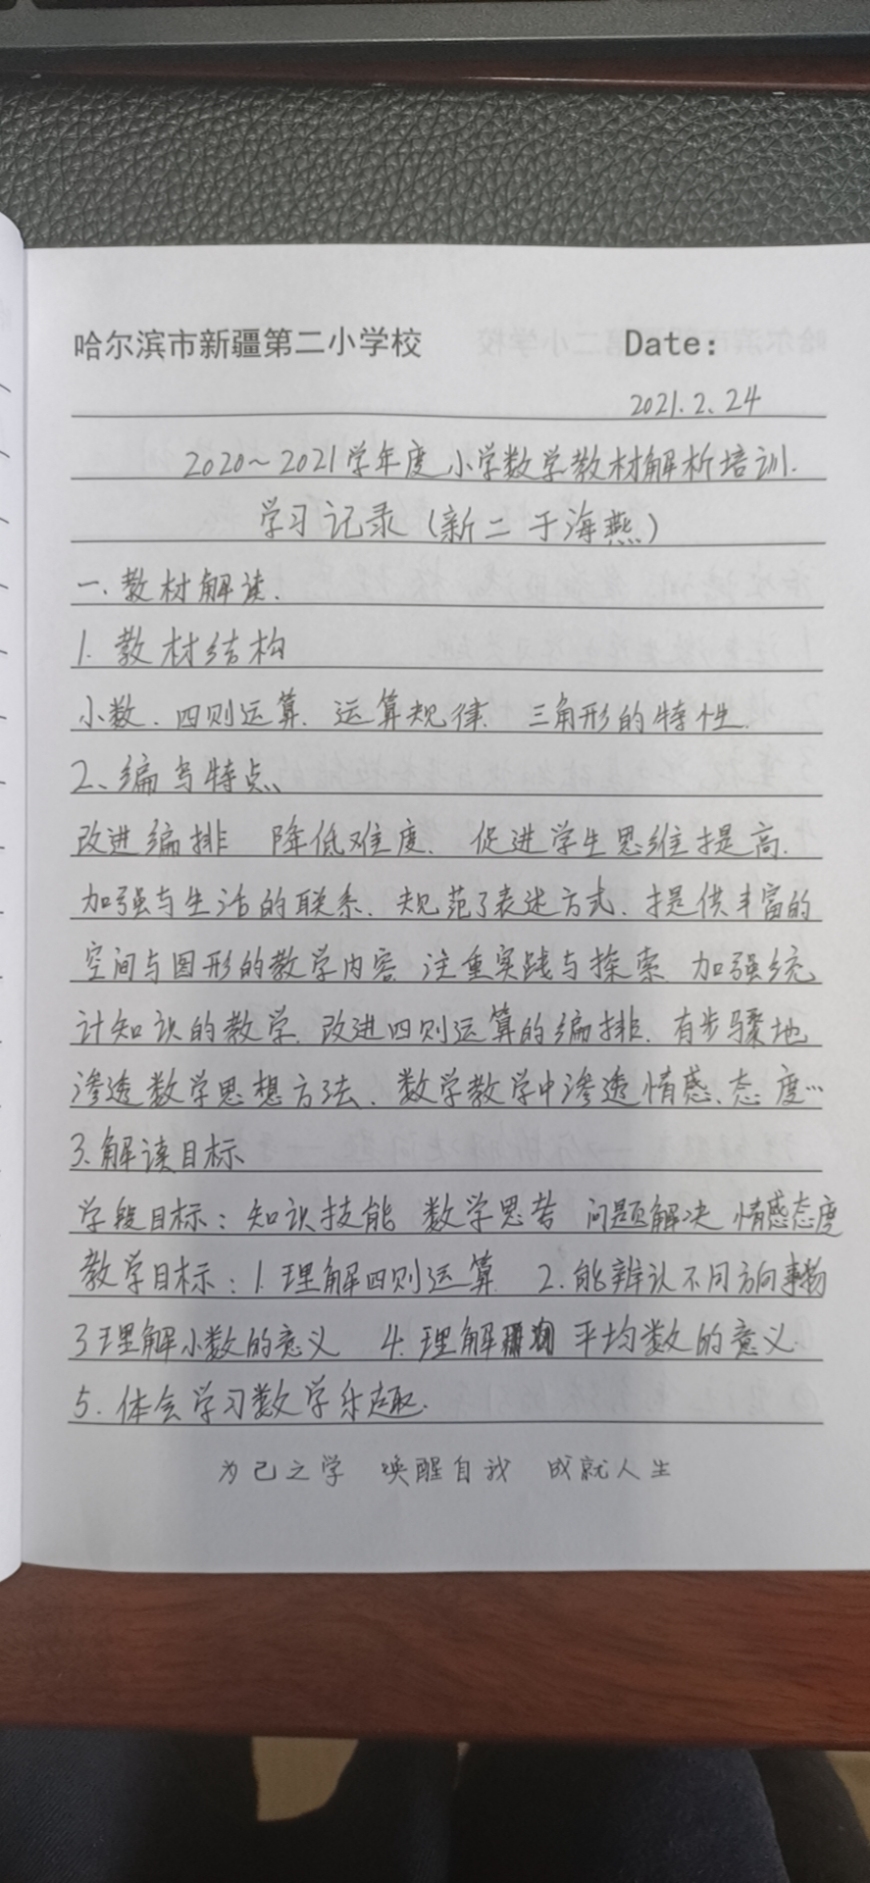 哈尔滨市新疆第二小学校 Date:
2021.2.24
2020~2021学年度小学数学教材解析培训.
学习记录(新二 于海燕)
一.教材解读.
1.教材结构
小数.四则运算.运算规律. 三角形的特性.
2、编写特点、
改进编排 降低难度. 促进学生思维提高.
加强与生活的联系.规范了表述方式.提供丰富的
空间与图形的教学内容.注重实践与探索.加强统
计知识的教学.改进四则运算的编排.有步骤地
渗透数学思想方法.数学教学中渗透情感、态度…
3.解读目标
学段目标:知识技能 数学思考 问题解决 情感态度
教学目标:1.理解四则运算 2.能辨认不同方向事物
3理解小数的意义 4.理解 平均数的意义.
5.体会学习数学乐趣.
为己之学 唤醒自我 成就人生